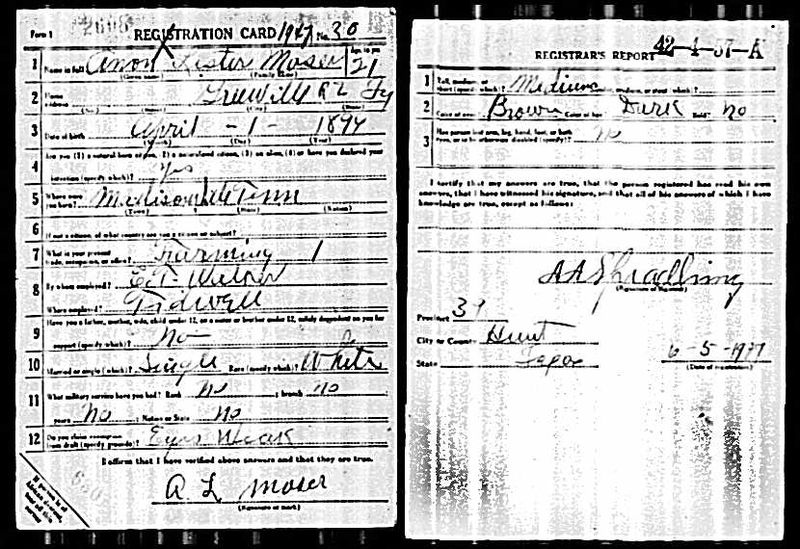 Form 1 2608 REGISTRATION CARD 1947 No. 30
1 Name in full Lester Moser Age in yrs 21
(Given name) (Family name)
2 Home address R2
(No.) (Street) (City) (State)
3 Date of birth April - 1 - 1894
(Month) (Day) (Year)
4 Are you (1) a natural born citizen, (2) a naturalized citizen, (3) an alien, (4) or have you declared your
intention (specify which)? Yes
5 Where were you born? Tenn
(Town) (State) (Nation)
6 If not a citizen, of what country are you a citizen or subject?
7 What is your present trade, occupation, or office? Farming 1
8 By whom employed? E.T.
Where employed? Tidwell
9 Have you a father, mother, wife, child under 12, or a sister or brother under 12, solely dependent on you for
support (specify which)? No
10 Married or single (which)? Single Race (specify which)? White
11 What military service have you had? Rank No ; branch no
years No ; Nation or State No
12 Do you claim exemption from draft (specify grounds)? Eyes Weak
I affirm that I have verified above answers and that they are true.
A L Moser
(Signature or mark)
If person is of African descent, tear off this corner
REGISTRAR'S REPORT 42-4-37-A
1 Tall, medium, or short (specify which)? Medium Slender, medium, or stout (which)?
2 Color of eyes? Brown Color of hair? Dark Bald? No
3 Has person lost arm, leg, hand, foot, or both
eyes, or is he otherwise disabled (specify)? No
I certify that my answers are true, that the person registered has read his own
answers, that I have witnessed his signature, and that all of his answers of which I have
knowledge are true, except as follows:
A A Spradling
(Signature of Registrar)
Precinct 39
City or County Hunt
State Texas 6-5-1917
(Date of registration)